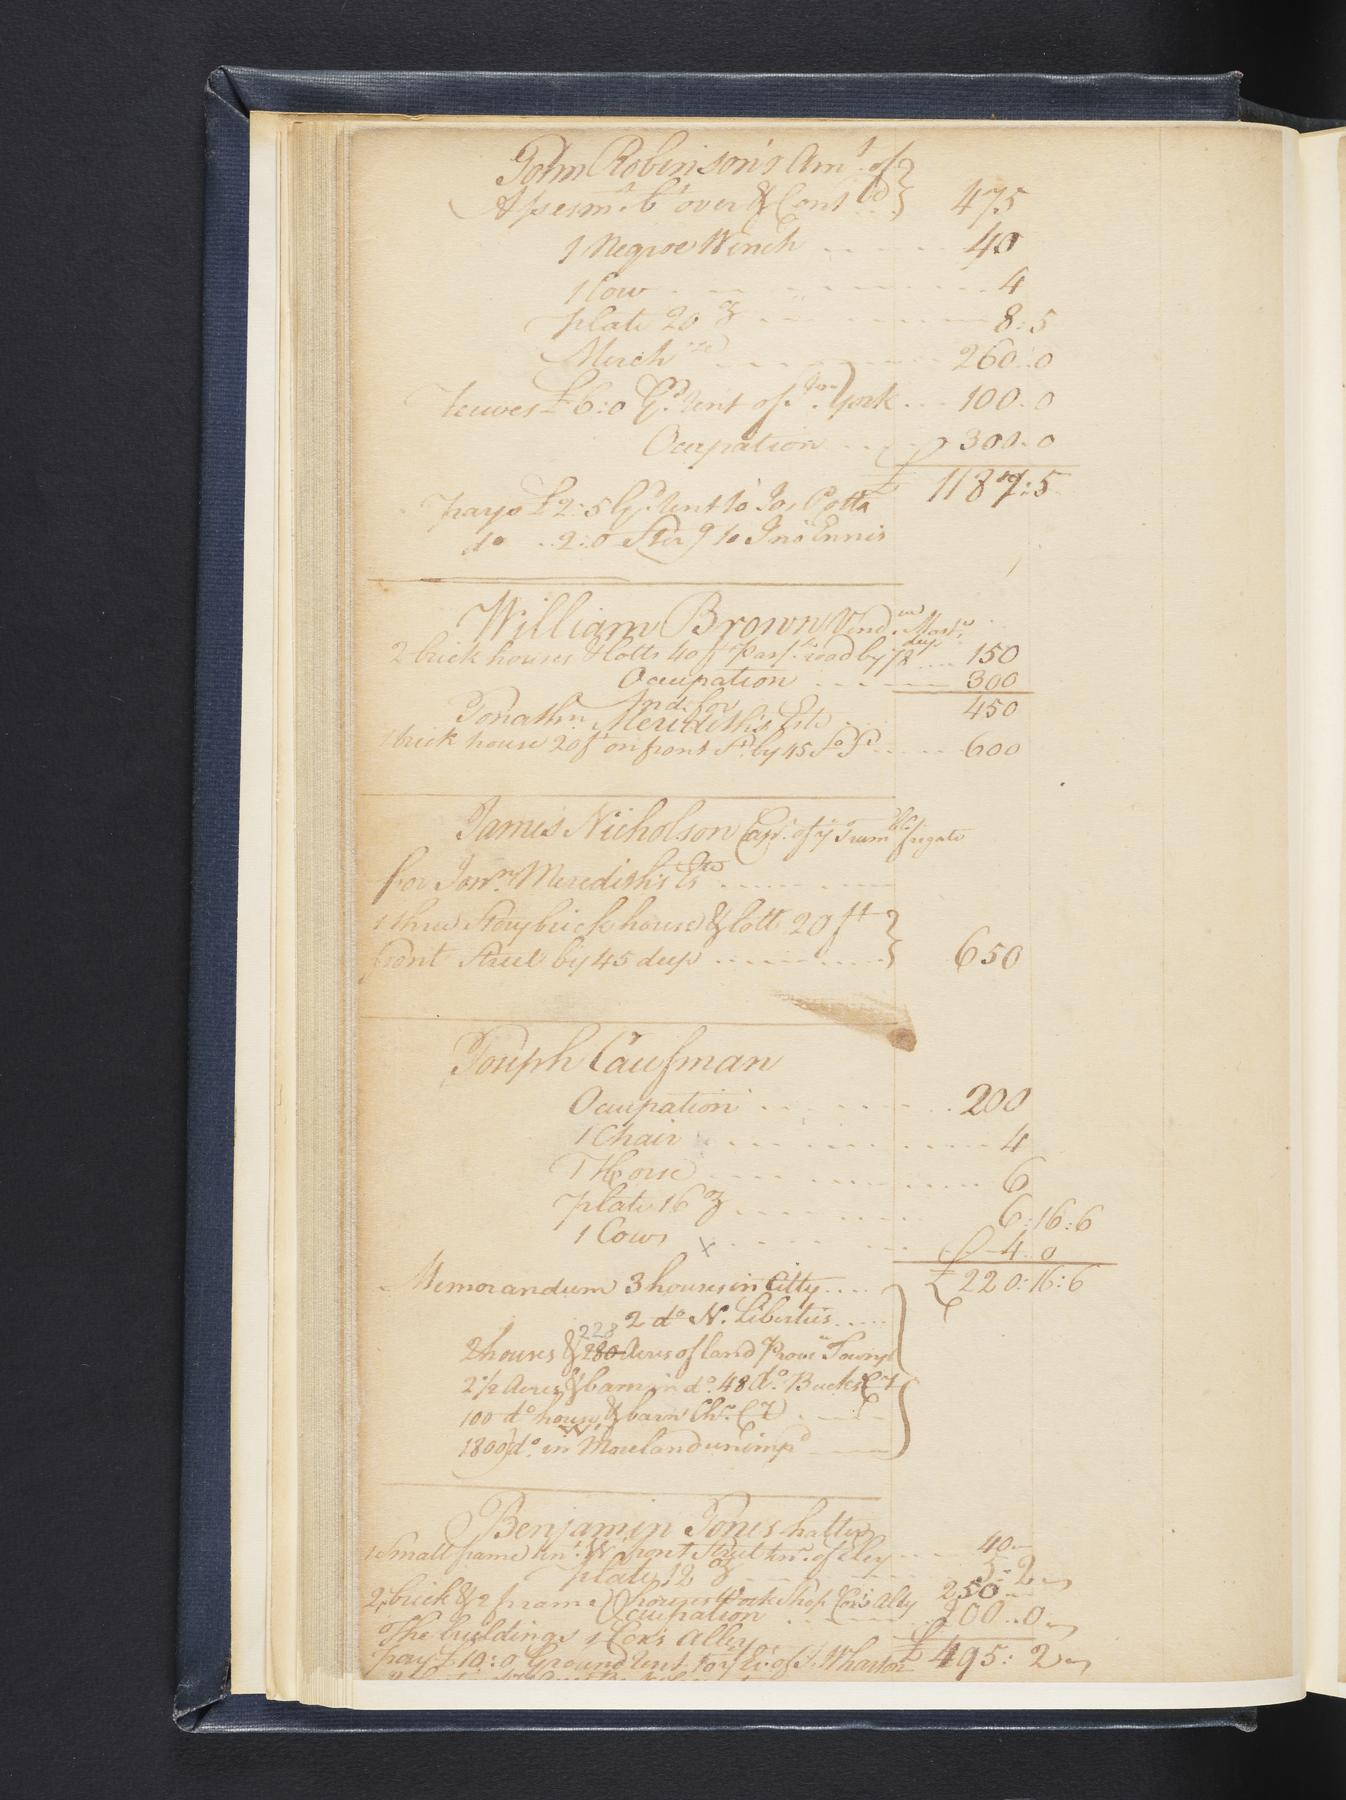 John Robinson's Amt. of
Assesmt. bt over & Contd 475
1 Negroe Wench 40
1 Cow 4
plate 20 oz 8:5
Merchze 260..0
£6:0 Gd. Rent of Jno. York 100..0
Ocupation £ 300..0
£ 1187:5
pays £2:5 Gd. Rent to Jos Potts
do ..2:0 Sterg to Jno Ennis
William Brown Vendue Mastr.
2 brick houses & lotts 40 ft by deep 150
Occupation 300
450
And for
Jonathn. Meredith's Este
1 brick house 20 ft on front St. by 45 600
James Nicholson Capt. of ye Trumble frigate
for Jonn. Meredith's Este
1 three Story brick house & lott 20 ft
front Street by 45 deep 650
Joseph Caufman
Ocupation 200
1 Chair 4
1 Horse 6
plate 16 oz 6:16:6
1 Cow x £ 4..0
£ 220:16:6
Memorandum 3 houses in Citty
2 do N. Liberties
228
2 houses & 280 Acres of land
2 1/2 Acres & barn in do. 48 do. Bucks Cy
100 do house & barn Chr. Cy
1800 do. in Moreland unimpd
Benjamin Jones hatter
1 Small frame tnt. W front Street 40
plate 12 oz 5:2
2 brick & 2 frame houses Work Shop Cox's Ally 250
Ocupation 200..0
The buildings Cox's Alley
pay £10:0 Ground Rent for Et. of J. Wharton £ 495:2